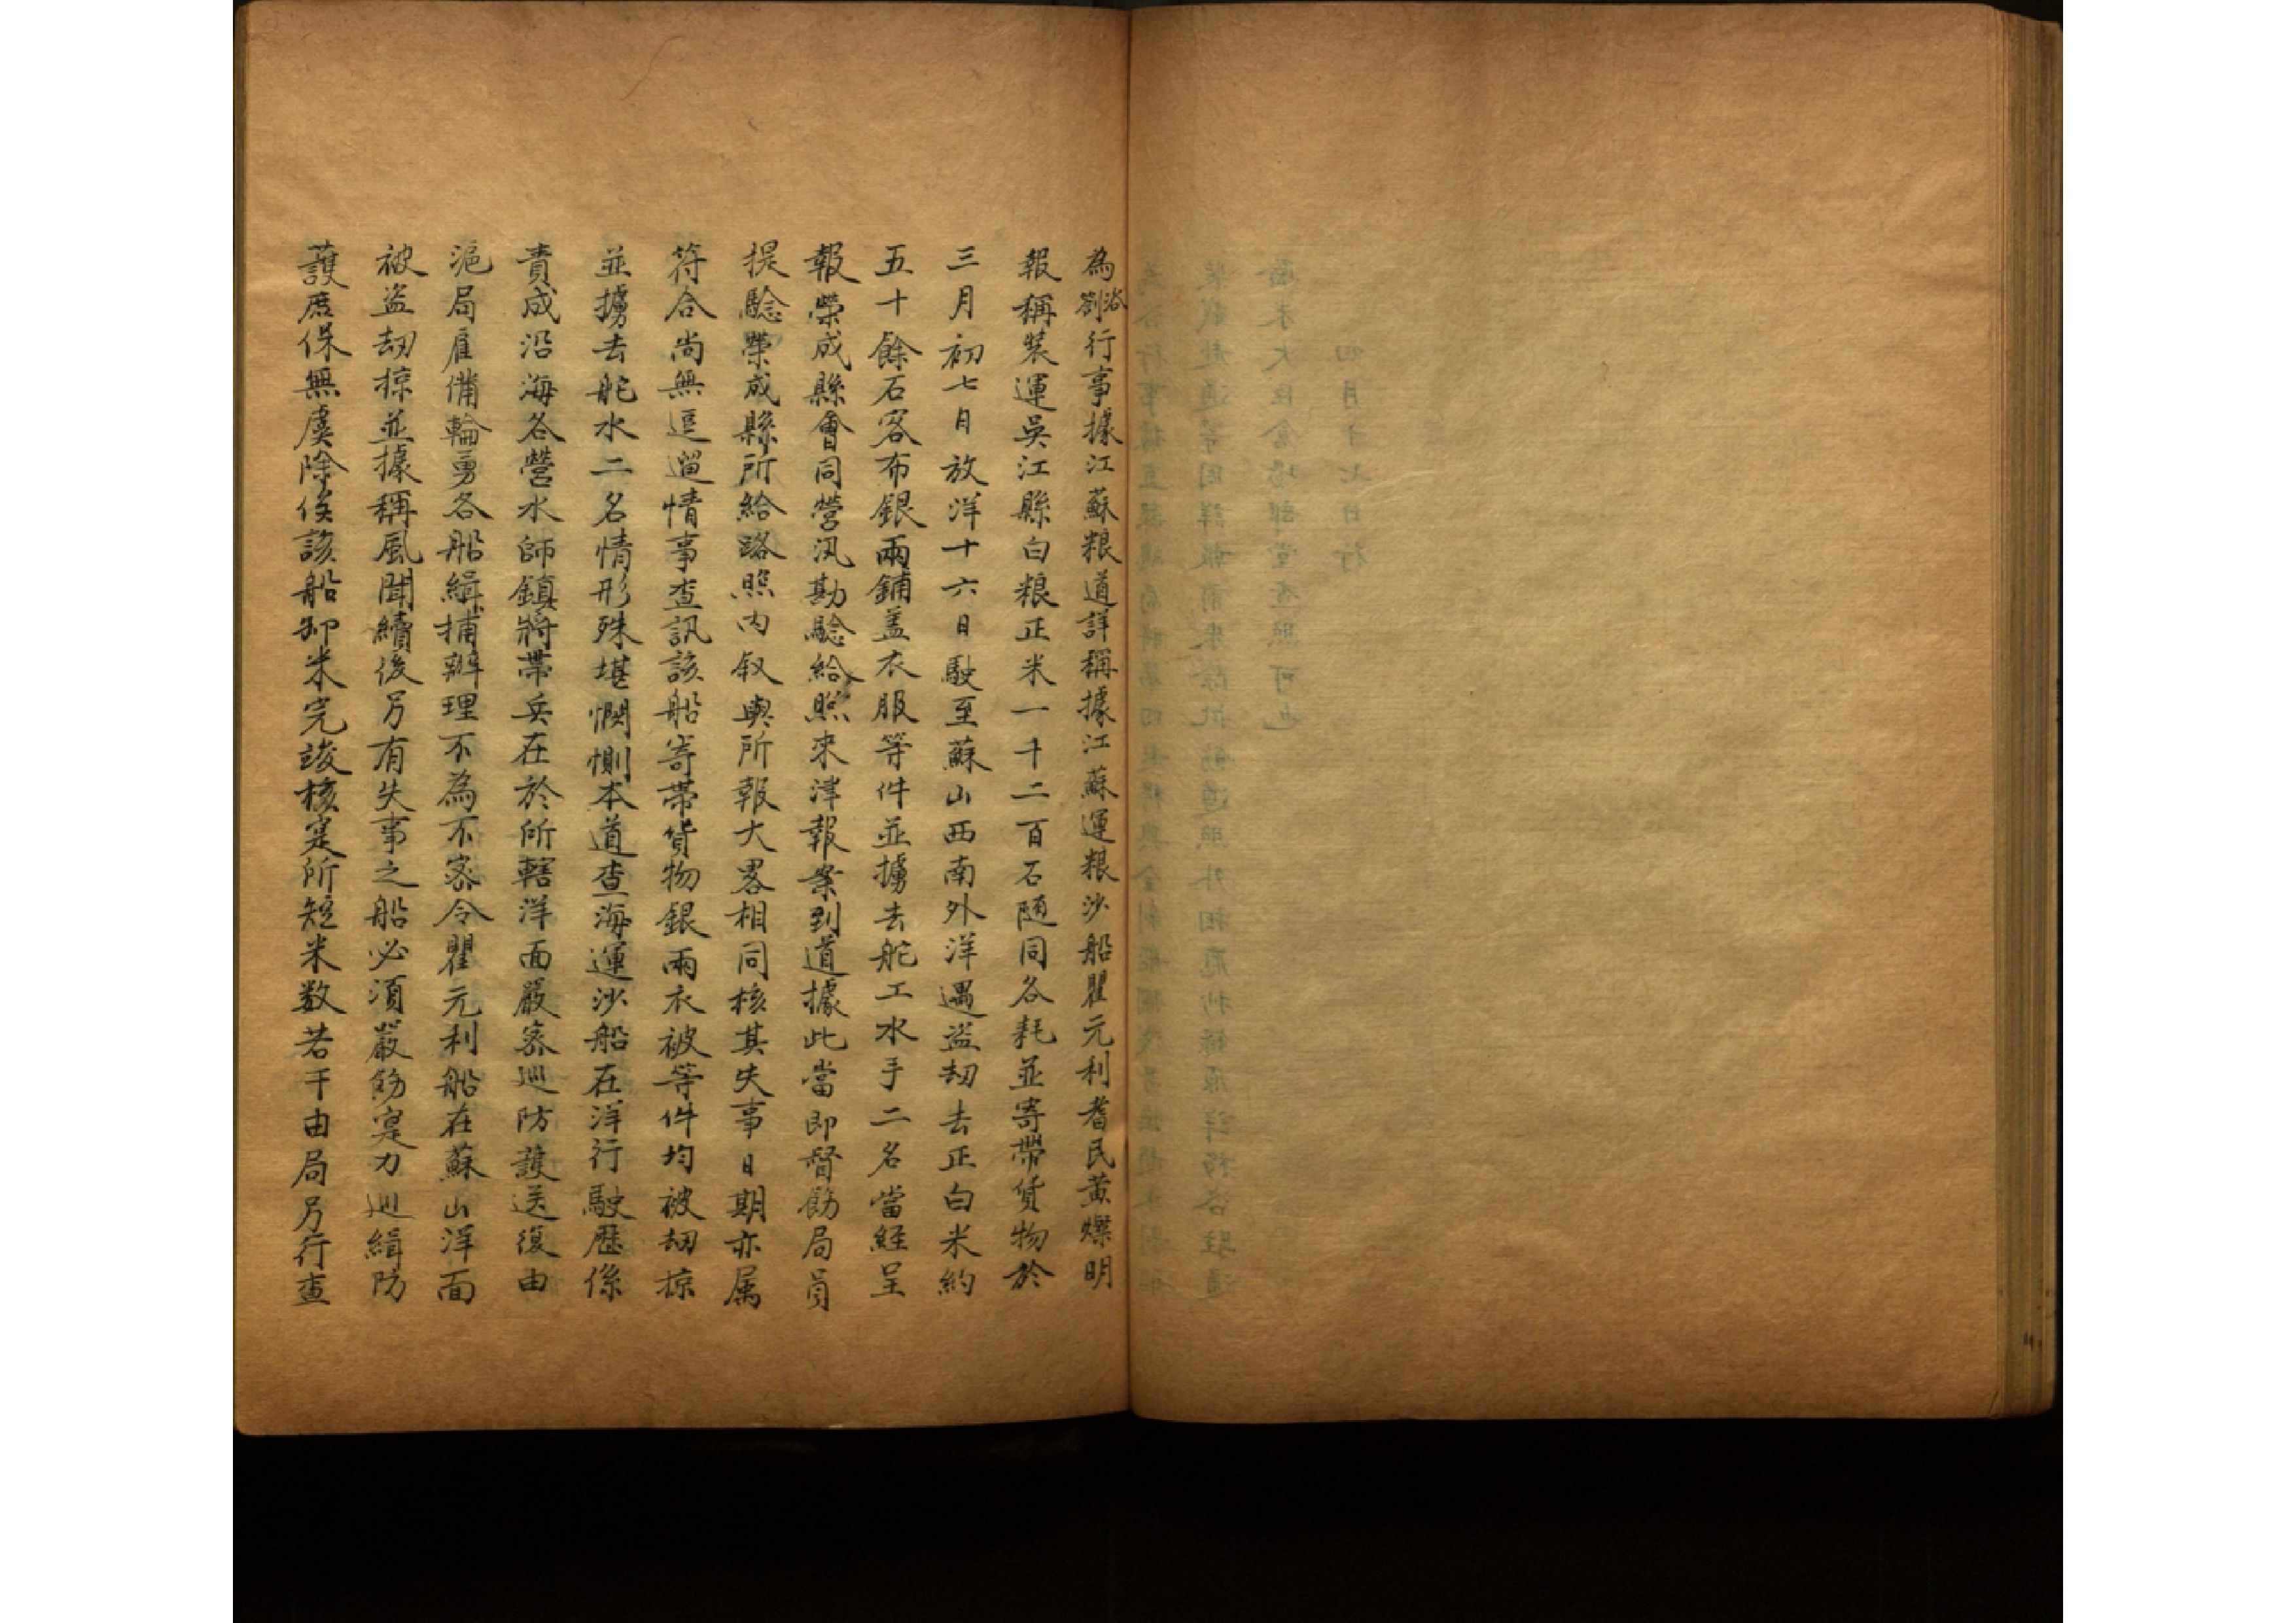 為咨劄行事據江蘇粮道詳稱據江蘇運粮沙船瞿元利耆民黄燦明
報稱裝運吳江縣白粮正米一千二百石随同各耗並寄帶貨物於
三月初七日放洋十六日駛至蘇山西南外洋遇盜刼去正白米約
五十餘石客布銀兩鋪盖衣服等件並擄去舵工水手二名當経呈
報榮成縣會同營汛勘騐給照來津報案到道據此當即督飭局員
提騐榮成縣所給路照內叙與所報大畧相同核其失事日期亦属
符合尚無逗遛情事查訊該船寄帶貨物銀兩衣被等件均被刼掠
並擄去舵水二名情形殊堪憫惻本道查海運沙船在洋行駛歷係
責成沿海各營水師鎮將帶兵在於所轄洋面嚴宻巡防護送復由
滬局雇備輪勇各船緝捕辦理不為不宻今瞿元利船在蘇山洋面
被盜刼掠並據稱風聞續後另有失事之船必須嚴飭寔力巡緝防
護庶保無虞除俟該船卸米完竣核寔所短米数若干由局另行查
四月十七日行